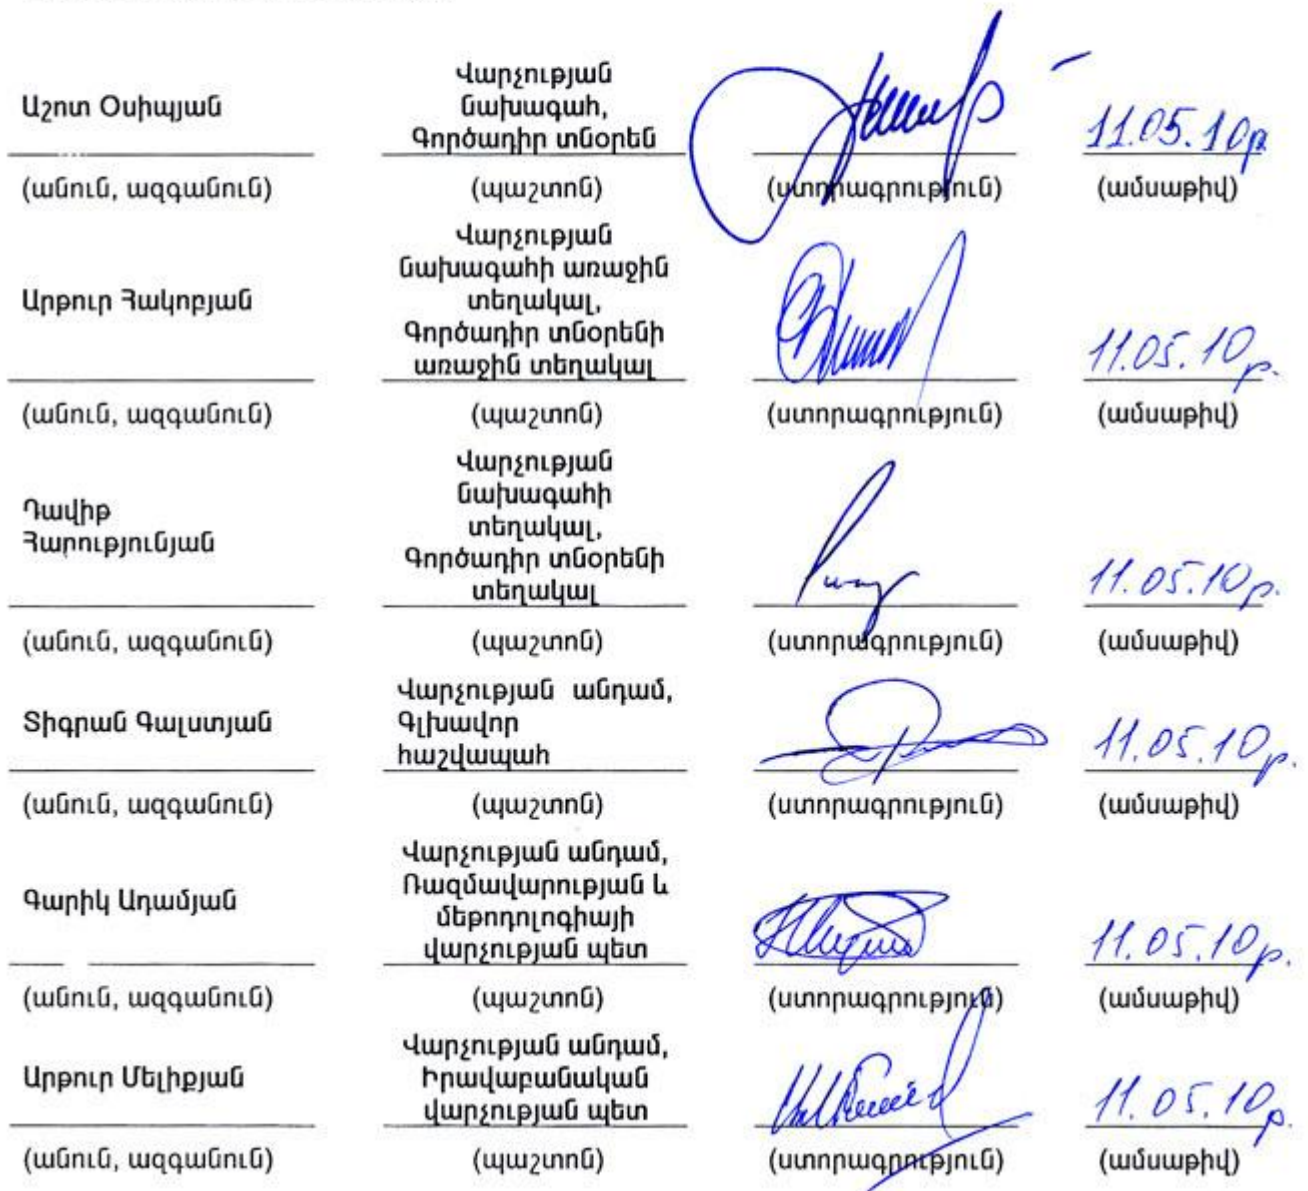 Վարչության
նախագահ,
Աշոտ Օսիպյան
Գործադիր տնօրեն
11.05.10թ
(անուն, ազգանուն) (պաշտոն) (ստորագրություն) (ամսաթիվ)
Վարչության
նախագահի առաջին
Արթուր Հակոբյան
տեղակալ,
Գործադիր տնօրենի
առաջին տեղակալ
11.05.10թ.
(անուն, ազգանուն) (պաշտոն) (ստորագրություն) (ամսաթիվ)
Վարչության
նախագահի
Դավիթ
Հարությունյան
տեղակալ,
Գործադիր տնօրենի
տեղակալ
11.05.10թ.
(անուն, ազգանուն) (պաշտոն) (ստորագրություն) (ամսաթիվ)
Տիգրան Գալստյան
Վարչության անդամ,
Գլխավոր
հաշվապահ
11.05.10թ.
(անուն, ազգանուն) (պաշտոն) (ստորագրություն) (ամսաթիվ)
Գարիկ Ադամյան
Վարչության անդամ,
Ռազմավարության և
մեթոդոլոգիայի
վարչության պետ
11.05.10թ.
(անուն, ազգանուն) (պաշտոն) (ստորագրություն) (ամսաթիվ)
Արթուր Մելիքյան
Վարչության անդամ,
Իրավաբանական
վարչության պետ
11.05.10թ.
(անուն, ազգանուն) (պաշտոն) (ստորագրություն) (ամսաթիվ)